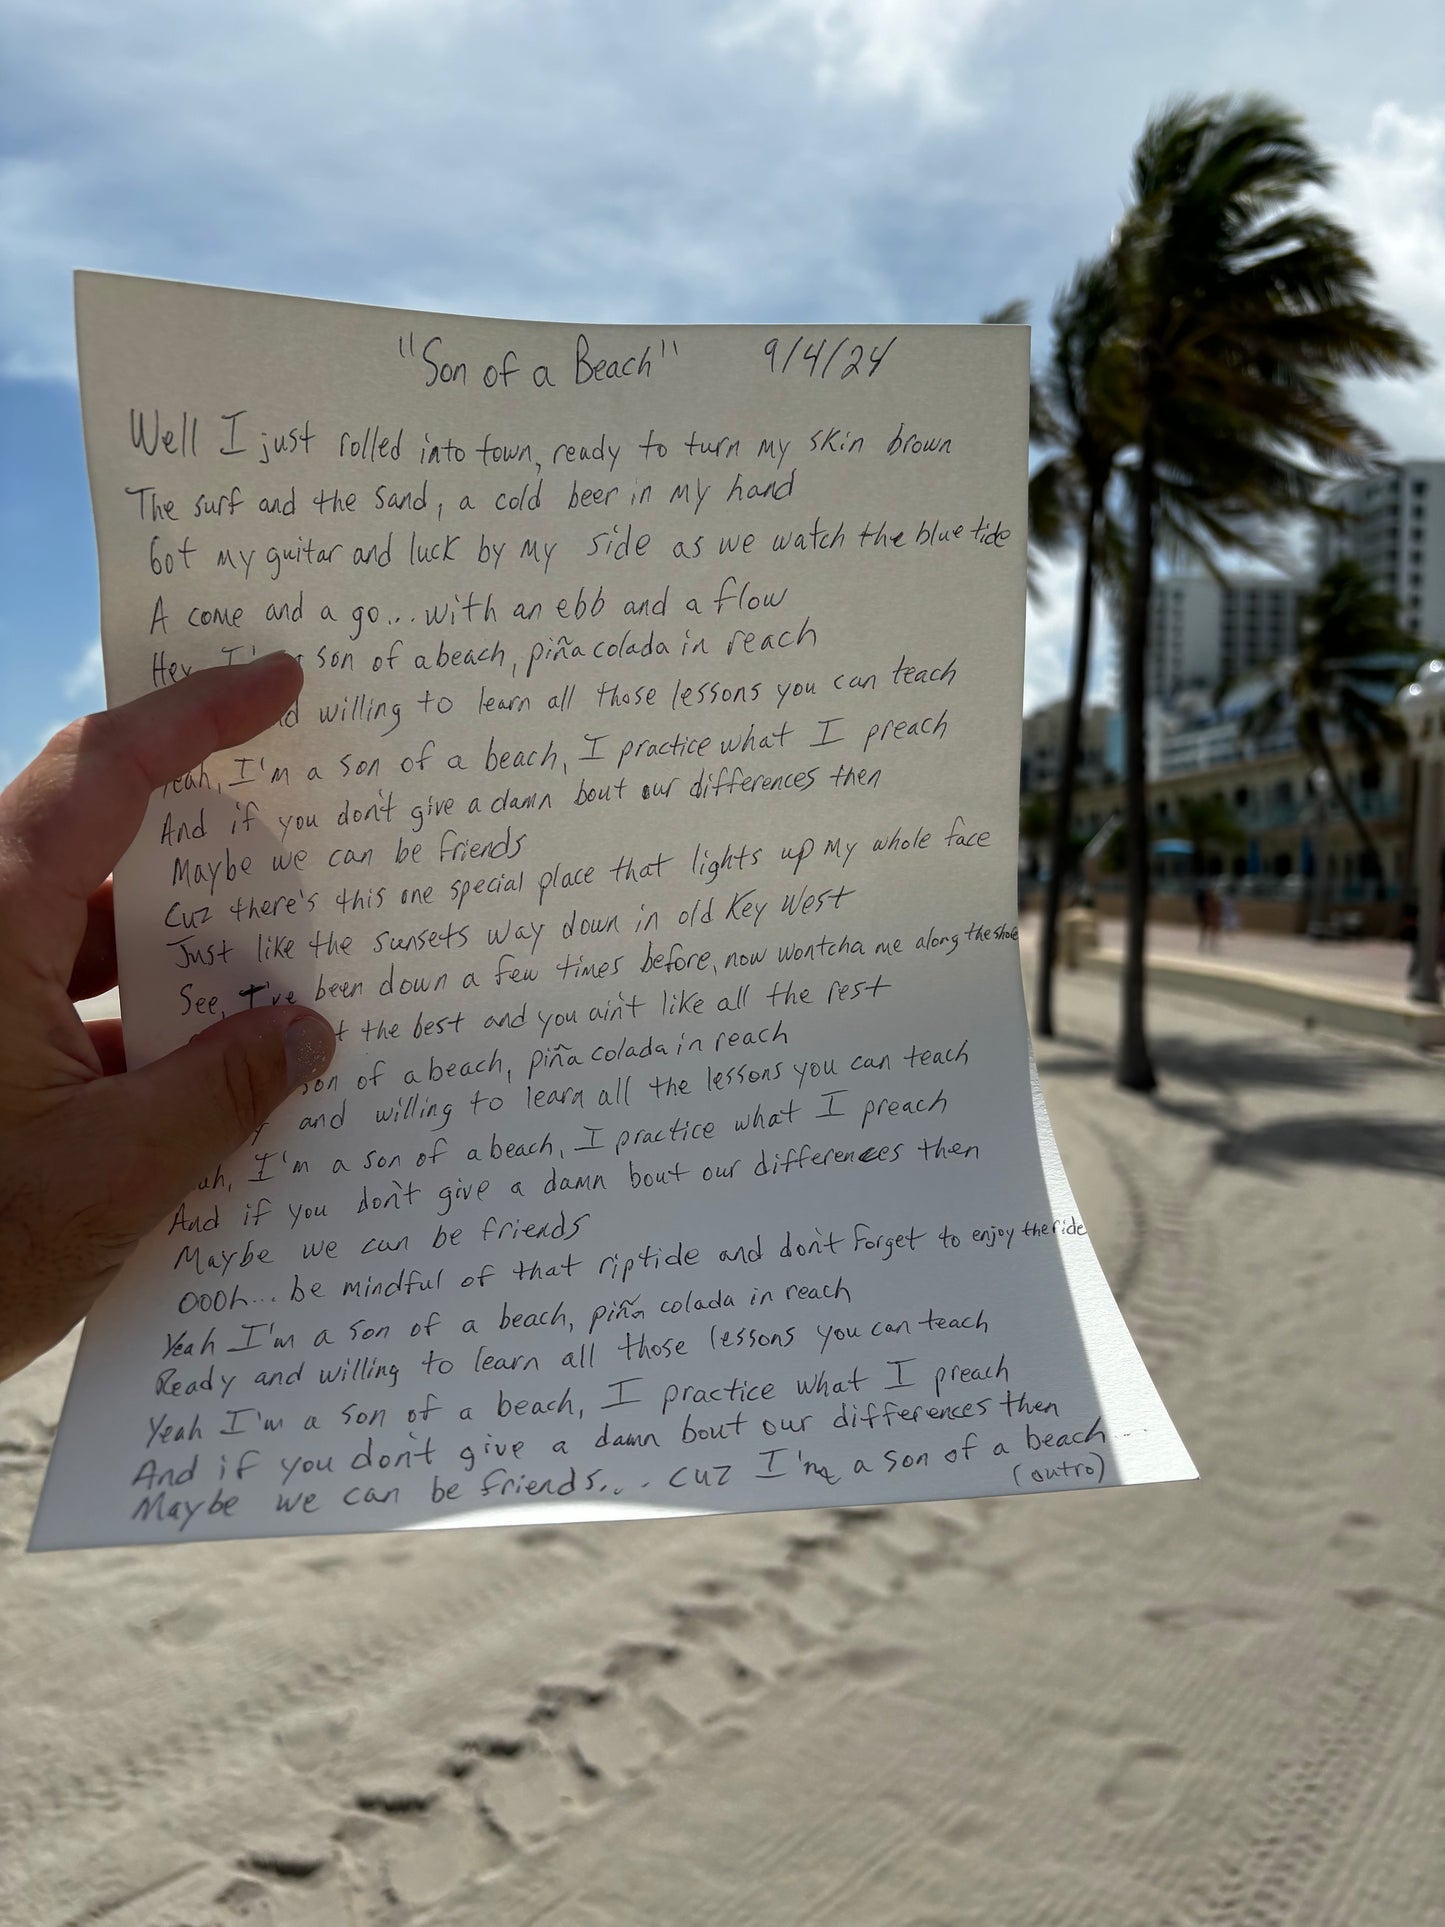 "Son of a Beach" 9/4/24
Well I just rolled into town, ready to turn my skin brown
The surf and the sand, a cold beer in my hand
Got my guitar and luck by my side as we watch the blue tide
A come and a go... with an ebb and a flow
Hey son of a beach, piña colada in reach
willing to learn all those lessons you can teach
Yeah, I'm a son of a beach, I practice what I preach
And if you don't give a damn bout our differences then
Maybe we can be friends
Cuz there's this one special place that lights up my whole face
Just like the sunsets way down in old Key West
See, I've been down a few times before, now wontcha me along the shore
the best and you ain't like all the rest
son of a beach, piña colada in reach
and willing to learn all the lessons you can teach
I'm a son of a beach, I practice what I preach
And if you don't give a damn bout our differences then
Maybe we can be friends
Oooh... be mindful of that riptide and don't forget to enjoy the ride
Yeah I'm a son of a beach, piña colada in reach
Ready and willing to learn all those lessons you can teach
Yeah I'm a son of a beach, I practice what I preach
And if you don't give a damn bout our differences then
Maybe we can be friends... cuz I'm a son of a beach...
(outro)